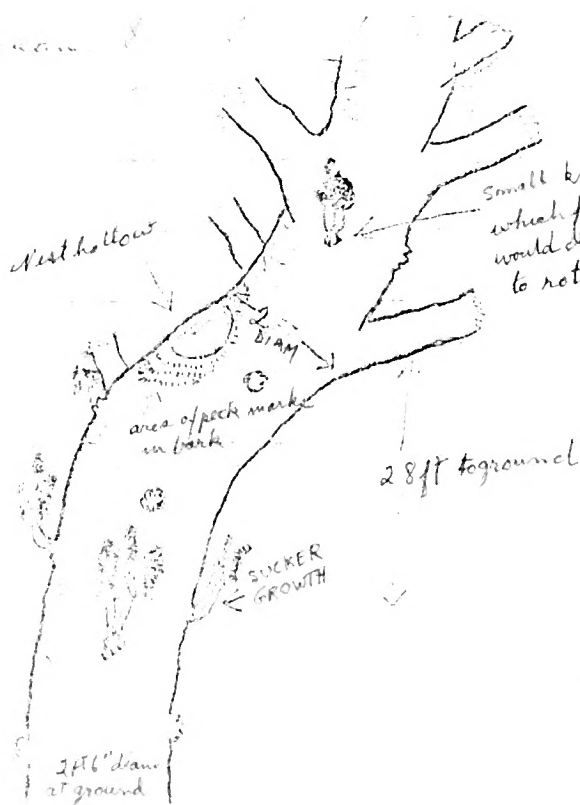 Small
which
would
to rot
Nest hollow
2
DIAM
area of peck marks
in bark
28ft to ground
SUCKER
GROWTH
2ft 6" diam
at ground